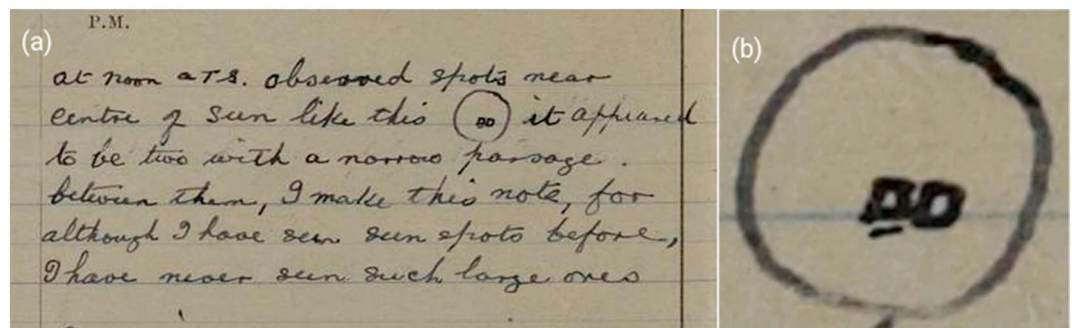 (a)
P.M.
at noon ATS. observed spots near
centre of sun like this it appeared
to be two with a narrow passage.
between them, I make this note, for
although I have seen sun spots before,
I have never seen such large ones
(b)